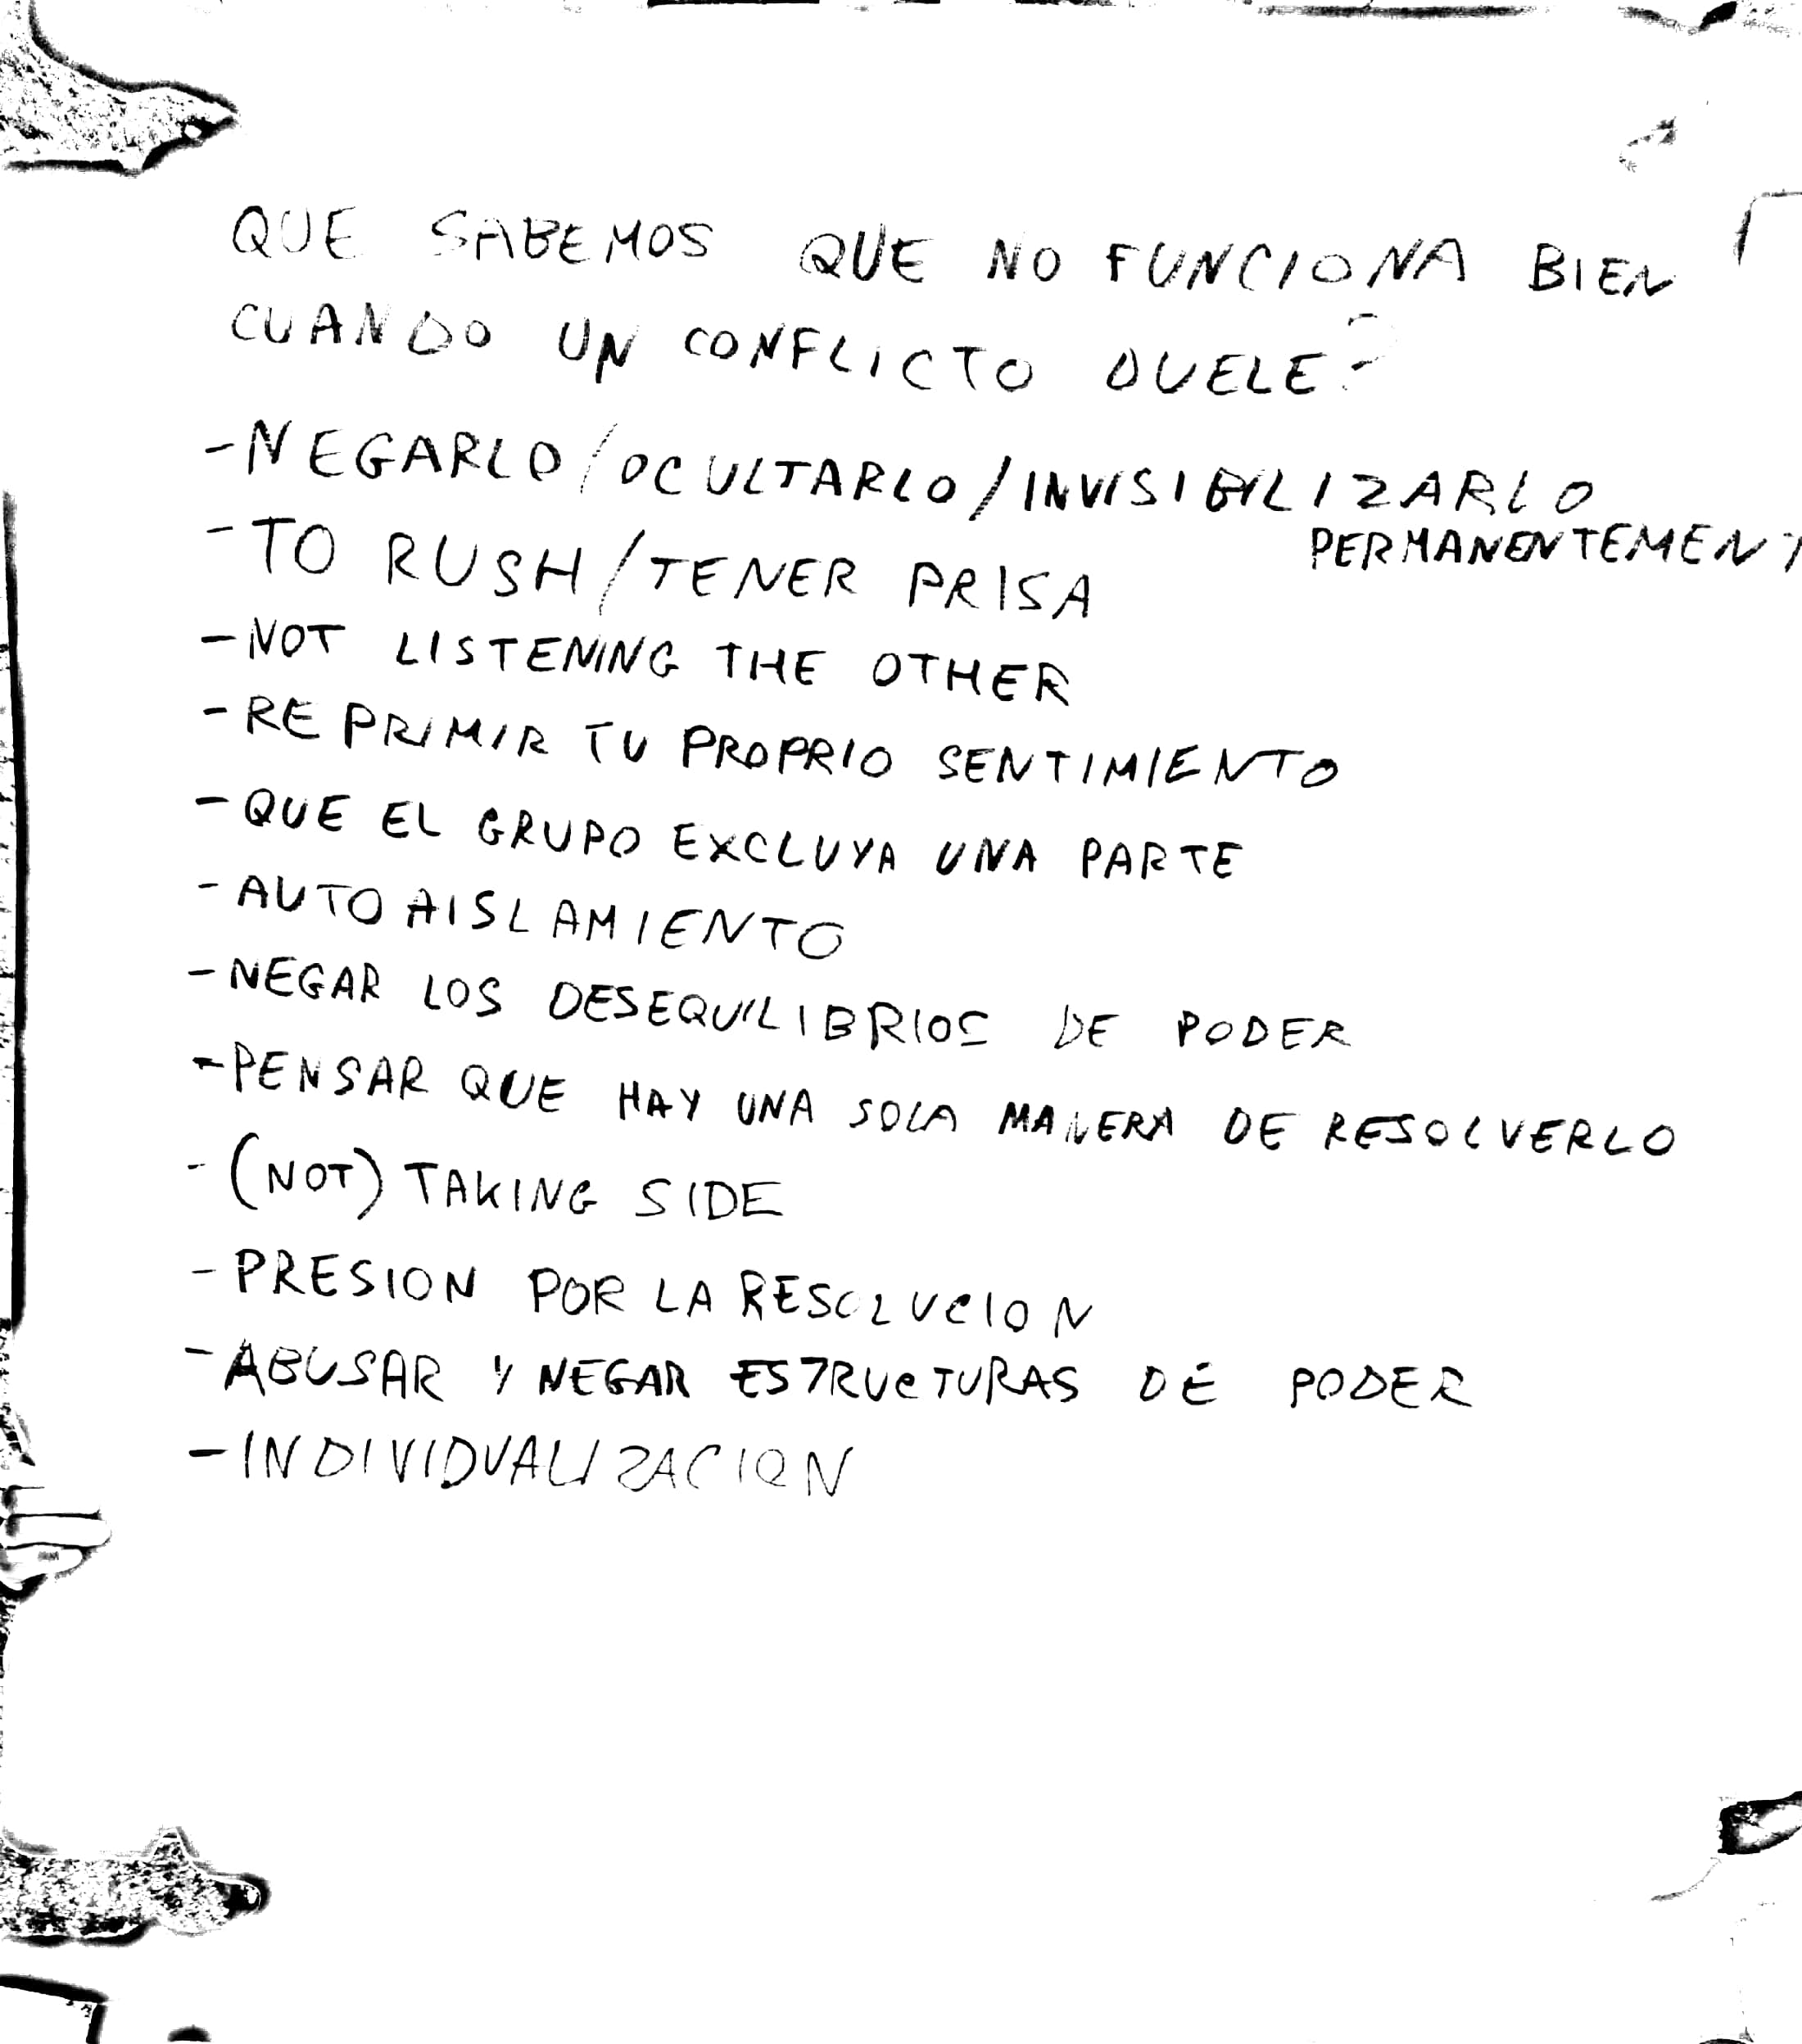 QUE SABEMOS QUE NO FUNCIONA BIEN
CUANDO UN CONFLICTO DUELE?
- NEGARLO/OCULTARLO/INVISIBILIZARLO
PERMANENTEMENT
- TO RUSH/TENER PRISA
- NOT LISTENING THE OTHER
- REPRIMIR TU PROPRIO SENTIMIENTO
- QUE EL GRUPO EXCLUYA UNA PARTE
- AUTOAISLAMIENTO
- NEGAR LOS DESEQUILIBRIOS DE PODER
- PENSAR QUE HAY UNA SOLA MANERA DE RESOLVERLO
- (NOT) TAKING SIDE
- PRESION POR LA RESOLUCION
- ABUSAR Y NEGAR ESTRUCTURAS DE PODER
- INDIVIDUALIZACION